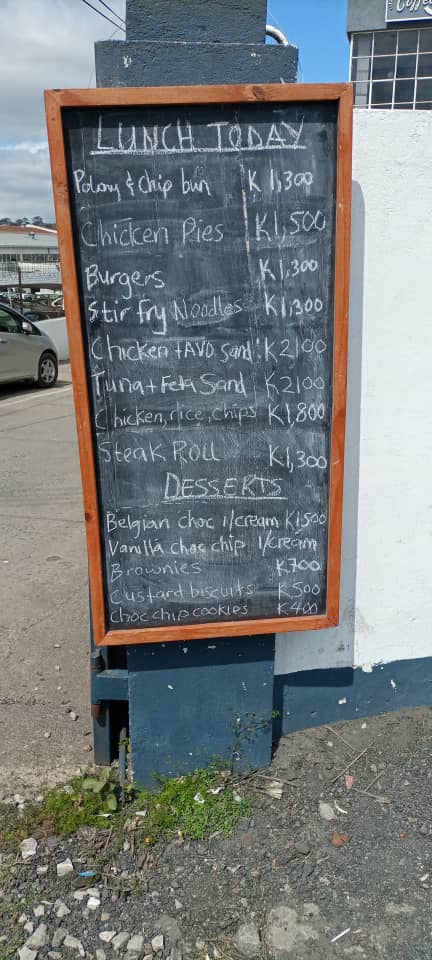 Coffee
LUNCH TODAY
Polony & Chip bun K1,300
Chicken Pies K1,500
Burgers K1,300
Stir Fry Noodles K1,300
Chicken + AVO. Sand K2,100
Tuna + Feta Sand K2,100
Chicken, rice, chips K1,800
Steak Roll K1,300
DESSERTS
Belgian choc i/cream K1,500
Vanilla choc chip i/cream
Brownies K700
Custard biscuits K500
Choc chip cookies K400